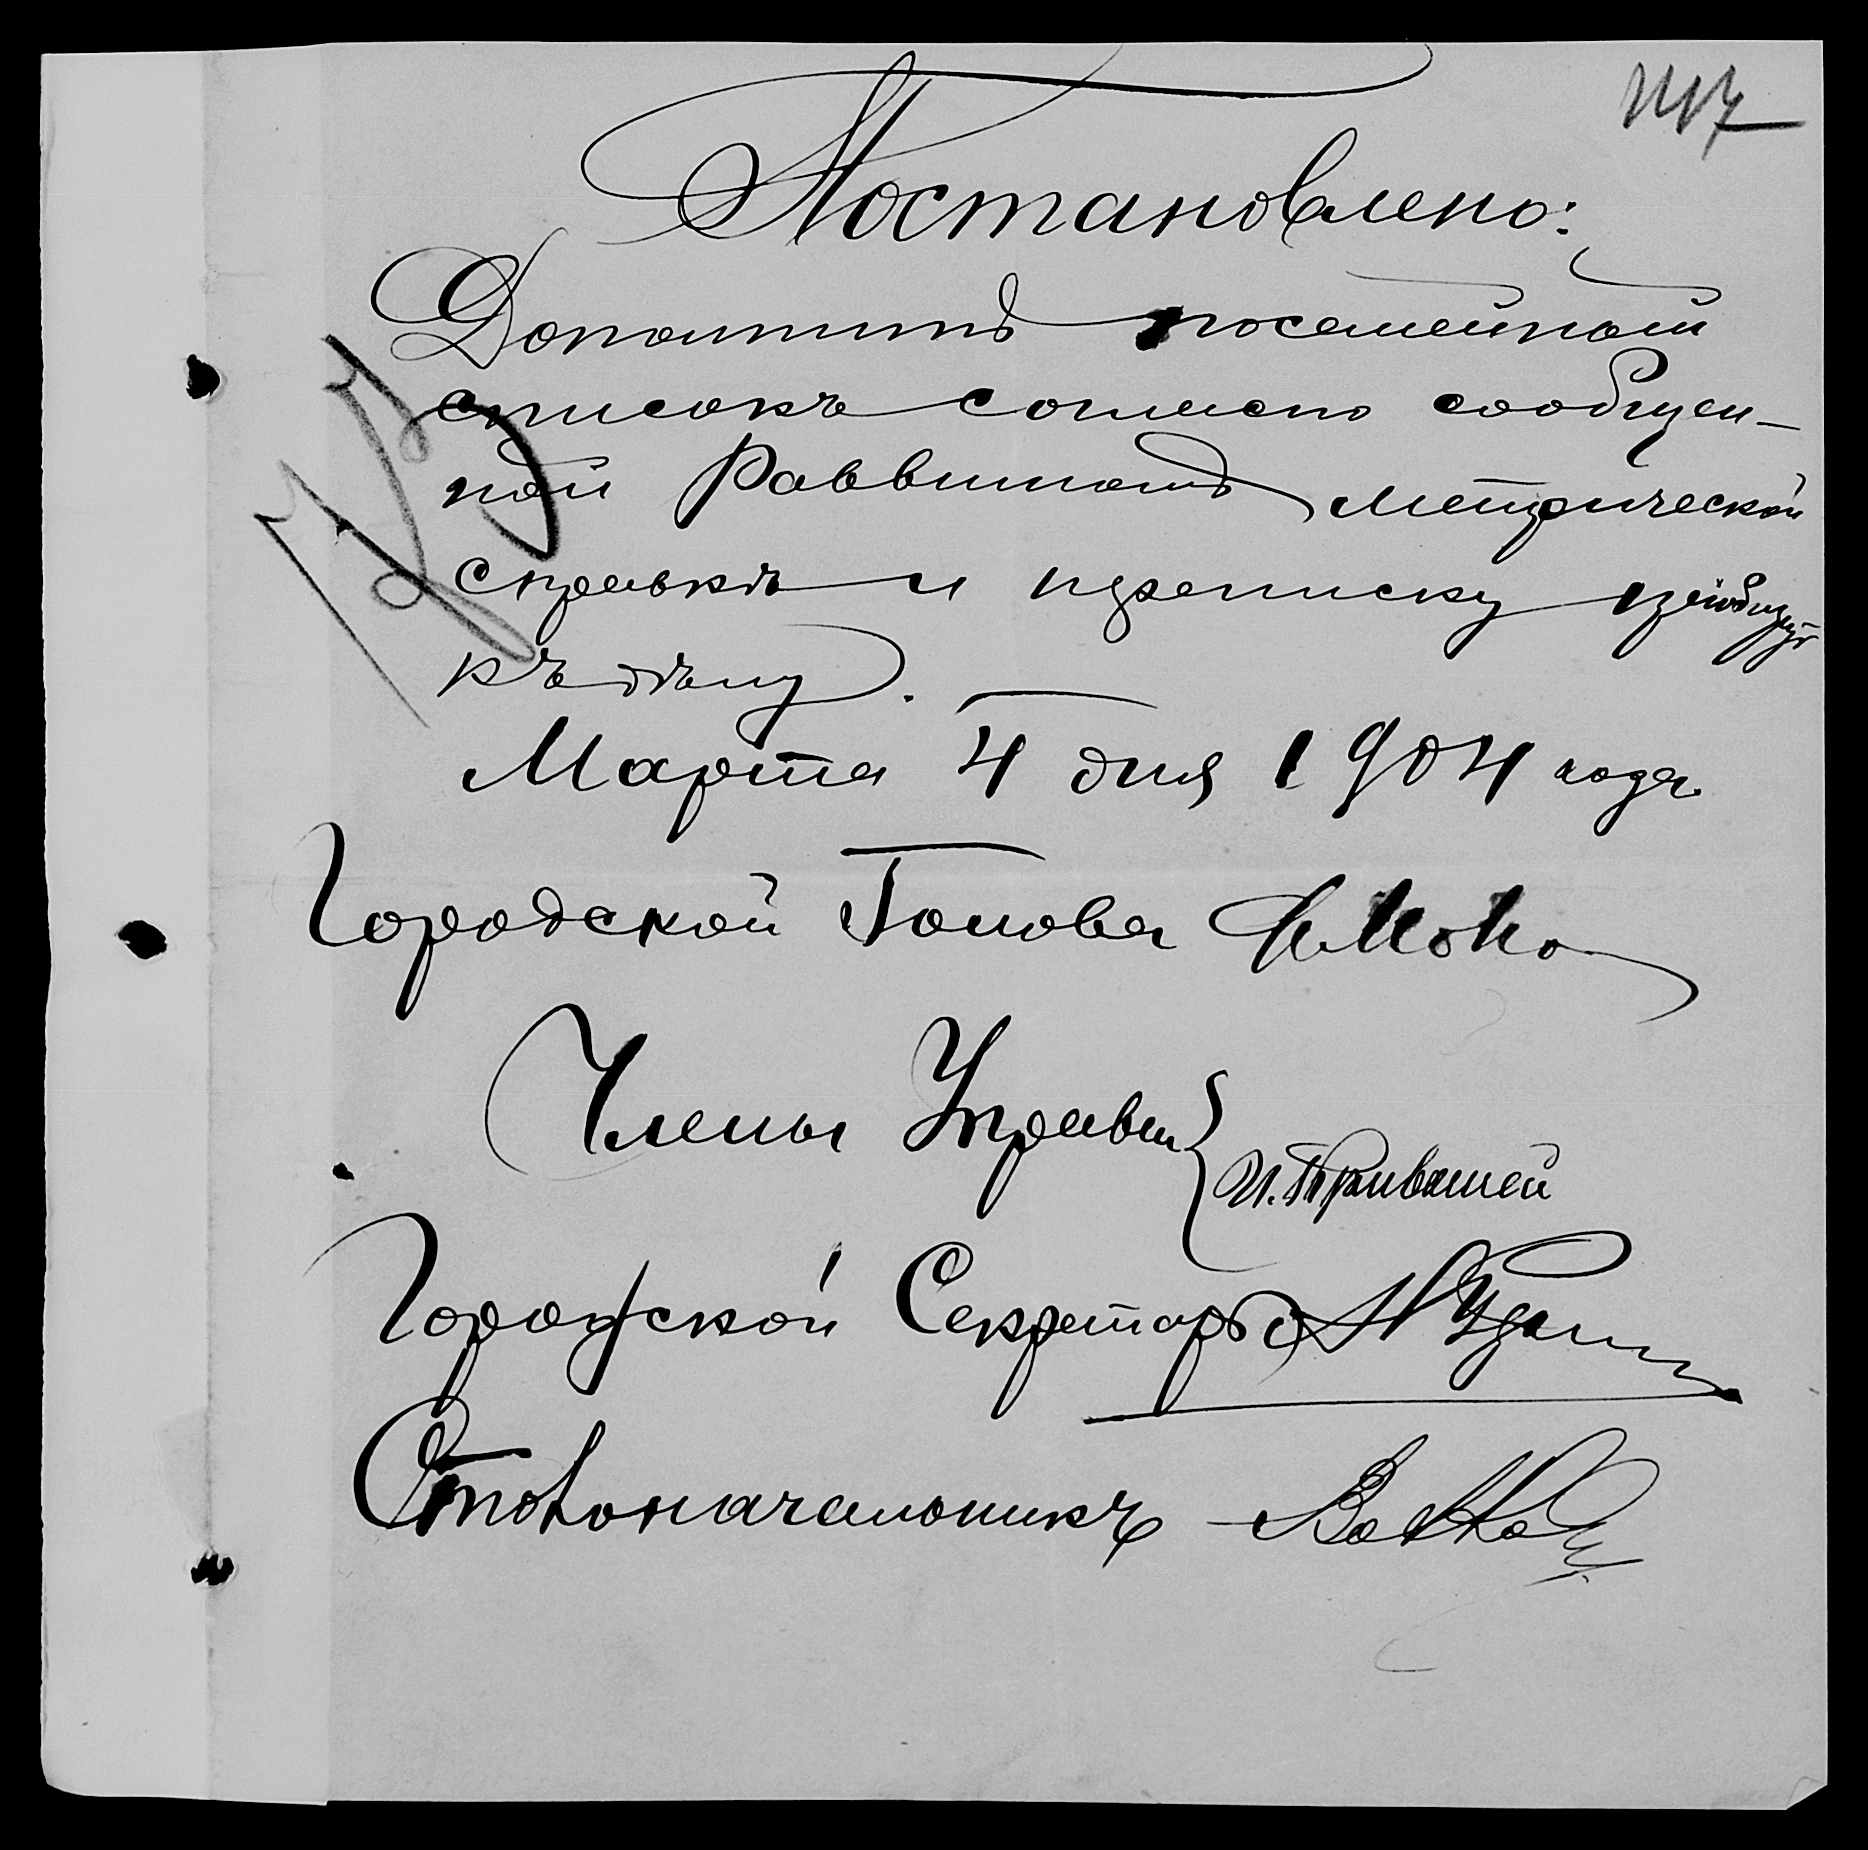 Постановлено:
Дополнить посемейный
списокъ согласно сообщен-
ной Раввиномъ метрической
справкѣ и переписку пріобщить
къ дѣлу.
Марта 4 дня 1904 года.
Городской Голова
Члены Управы
Городской Секретарь
Столоначальникъ